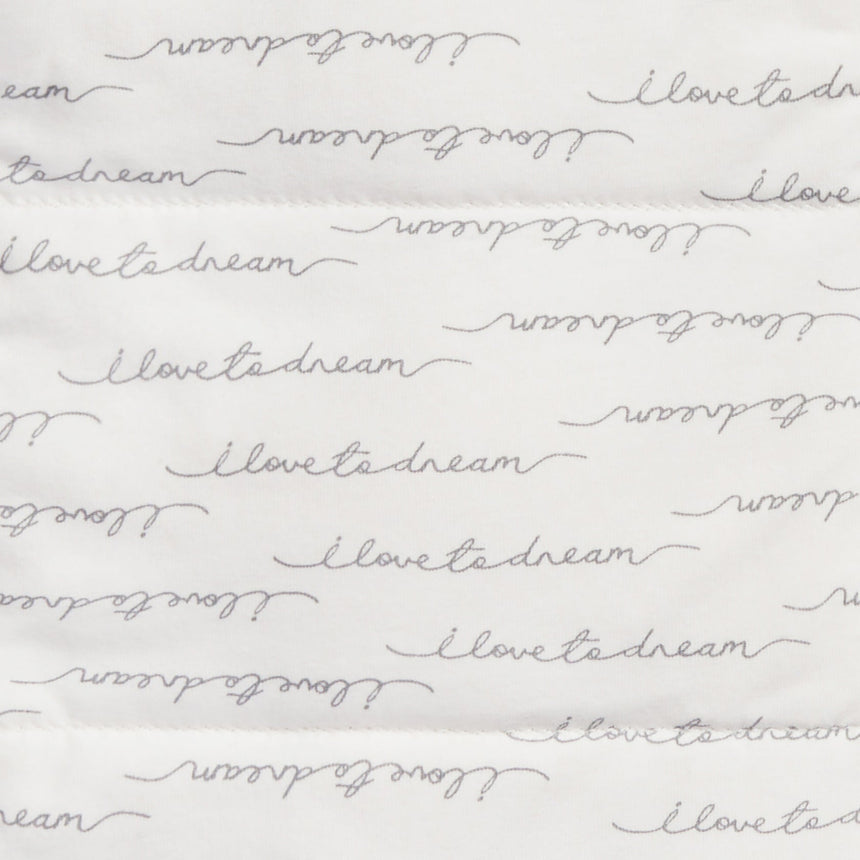 i love to dream
eam
i love to dr
i love to dream
to dream
i love
i love to dream
i love to dream
i love to dream
i love to dream
i love to
i l
i love to dream
dream
i love to
i love to dream
i love to dream
i love to dream
i love to dream
i love to dream
i love to dream
ream
i love to d